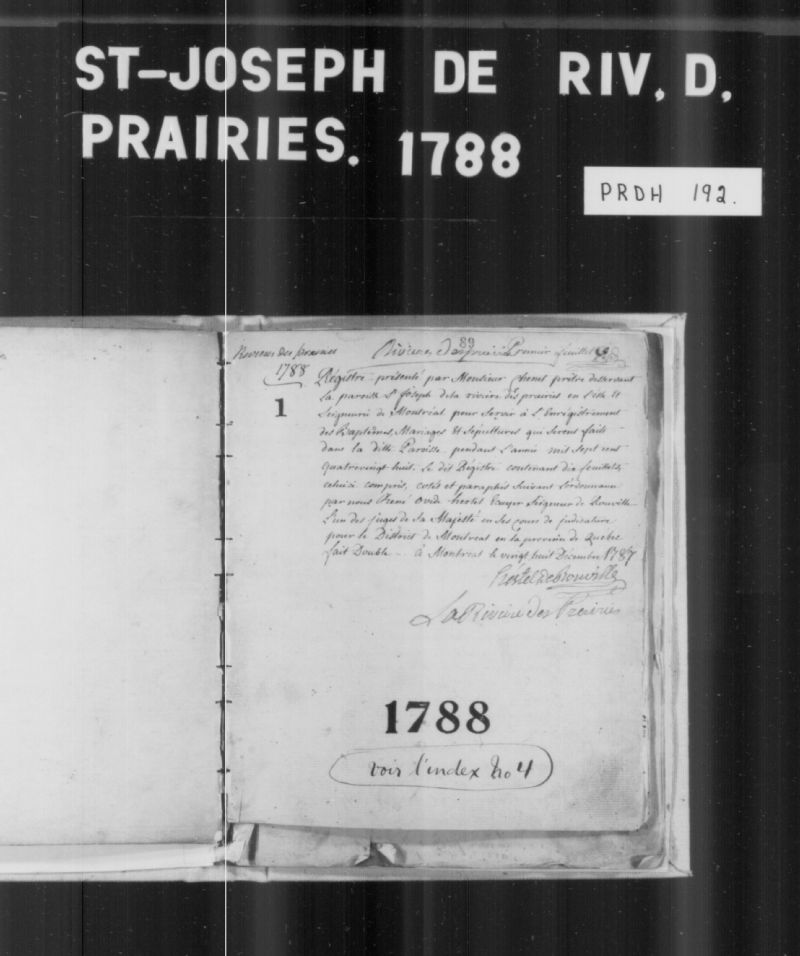 ST-JOSEPH DE RIV. D.
PRAIRIES. 1788
PRDH 192.
89
Rivière des prairies Premier feuillet
1788
1
Régistre présenté par Monsieur prêtre desservant
la paroisse St Joseph dela rivière des prairies en l'isle &
Seigneurie de Montréal pour servir à L'Enrégistrement
des Baptêmes, Mariages & Sépultures qui seront faits
dans la ditte Paroisse pendant l'année mil sept cent
quatrevingt huit. Le dit Régistre contenant dix feuillets
celuici compris, cotés et paraphés suivant L'ordonnance
par nous René Ovide Hertel Ecuyer Seigneur de Rouville
L'un des juges de Sa Majesté en ses cours de judicature
pour le District de Montreal en la province de Quebec
fait Double à Montreal le vingt huit Décembre 1787
Hertel de Rouville
La Rivière des Prairies
1788
voir l'index No 4